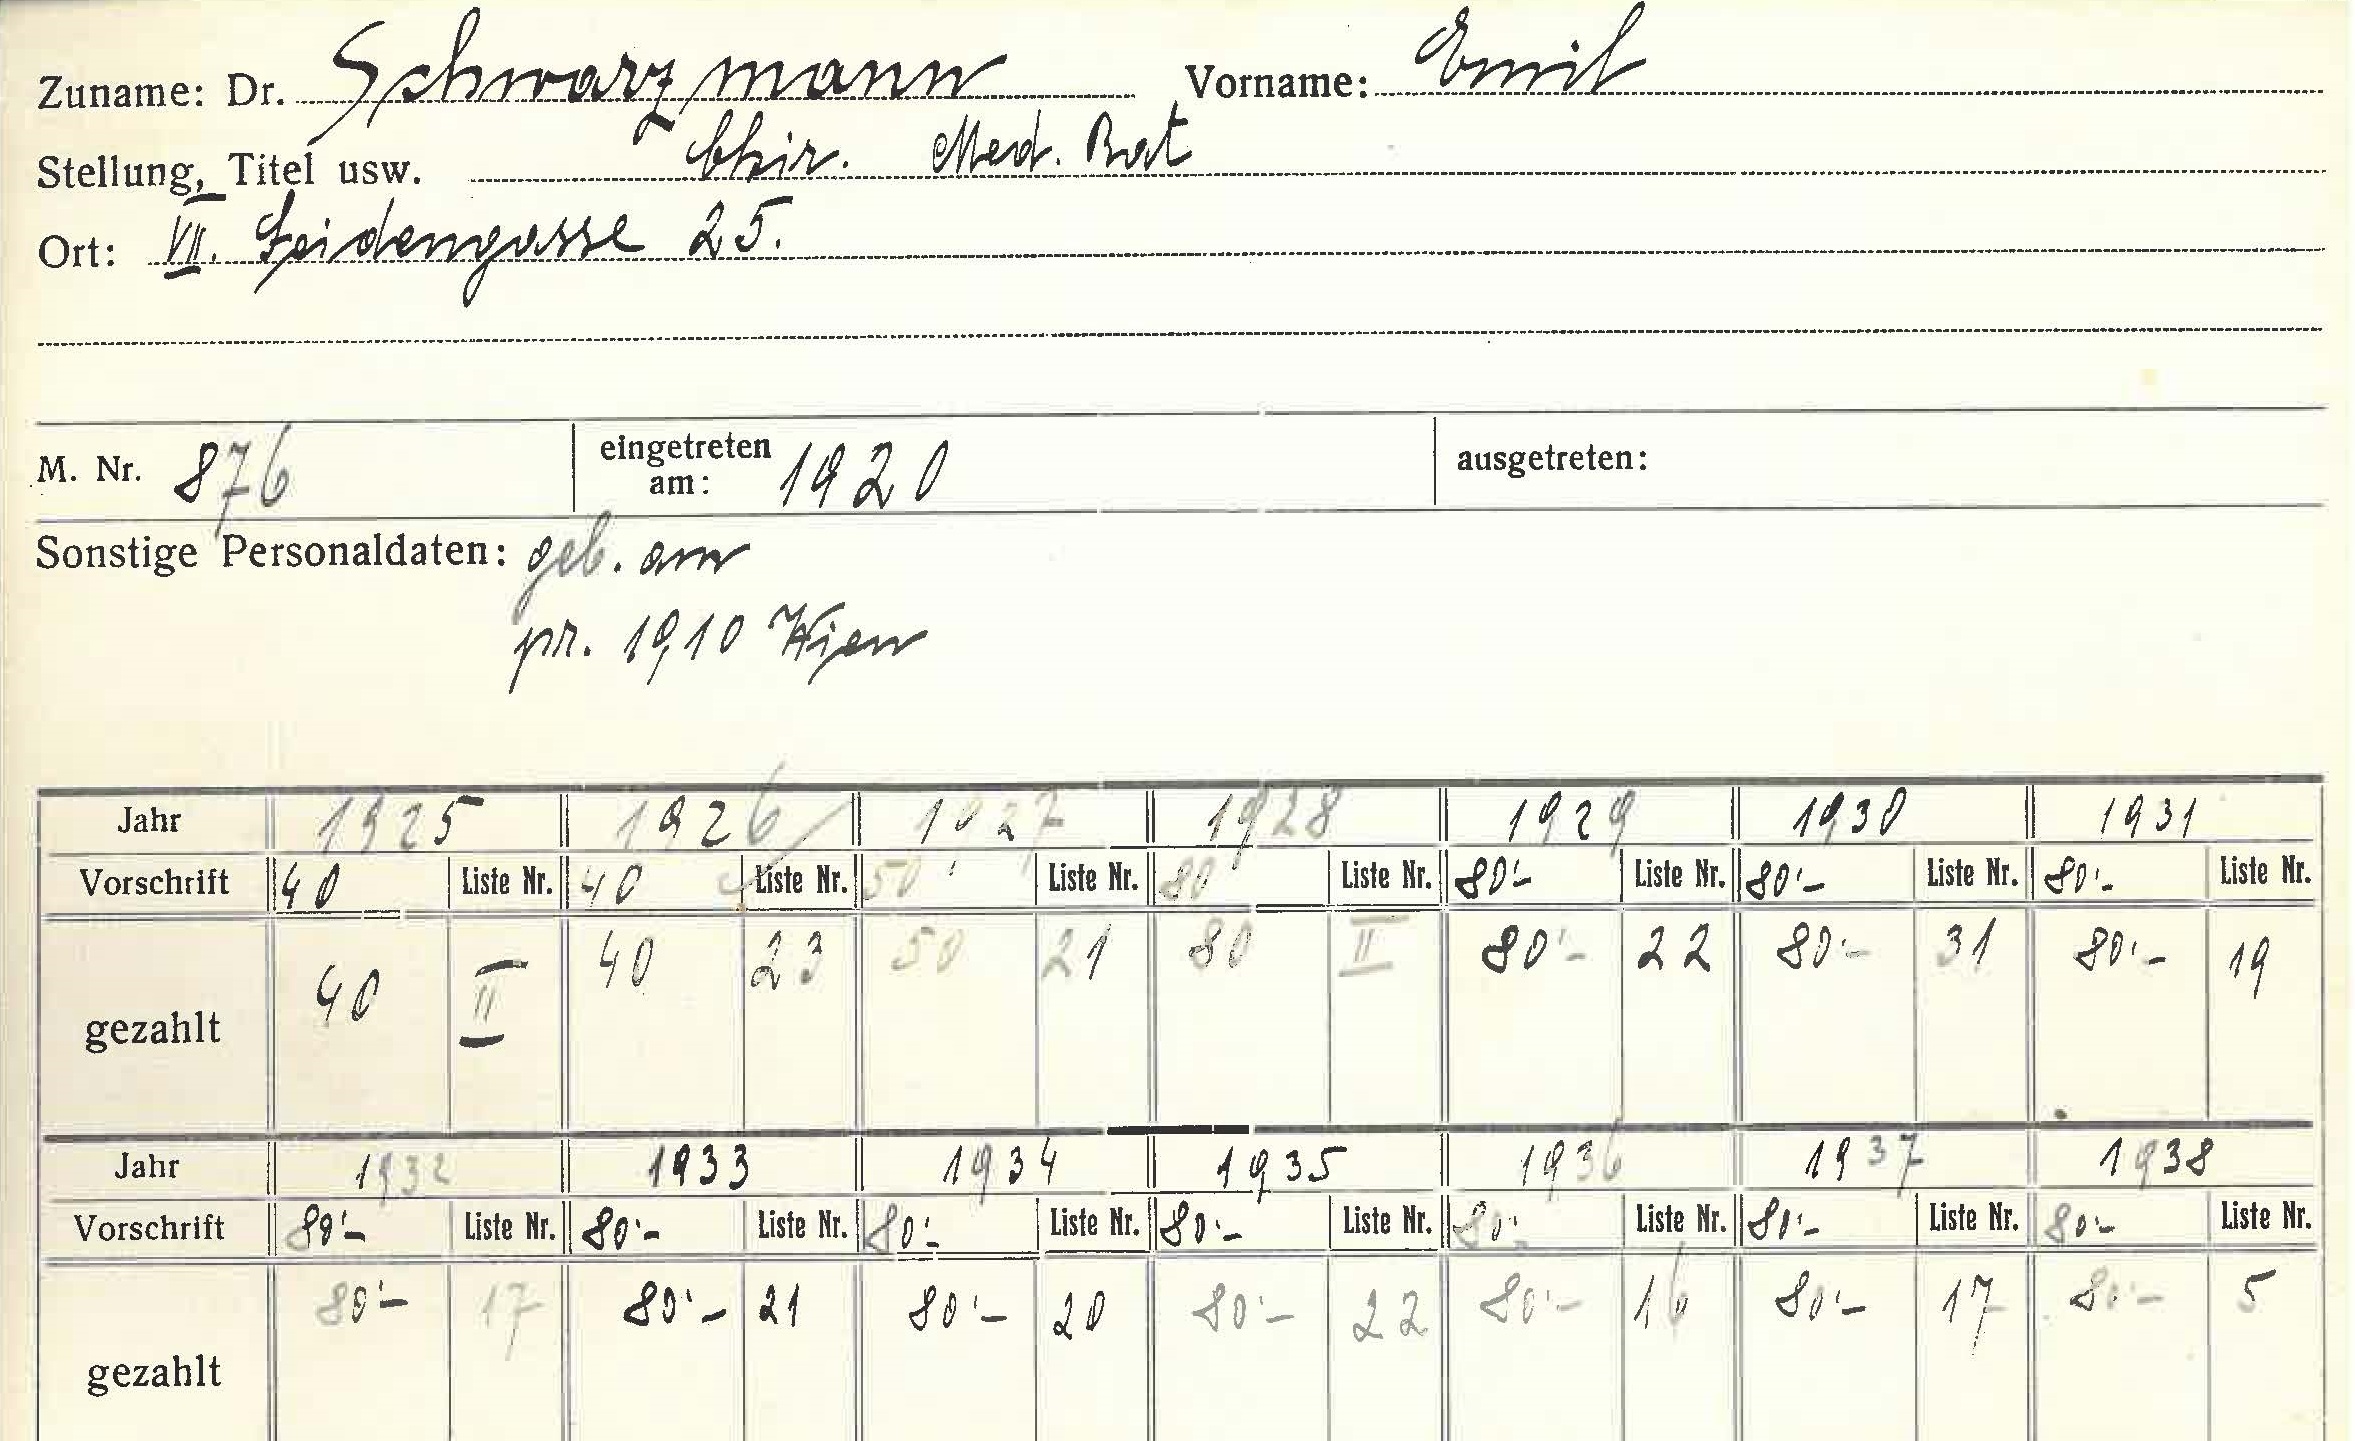 Zuname: Dr. Schwarzmann Vorname: Emil
Stellung, Titel usw. Chir. Med. Rat
Ort: VII. Seidengasse 25.
M. Nr. 876 eingetreten am: 1920 ausgetreten:
Sonstige Personaldaten: geb. am
pr. 1910 Wien
Jahr 1925 1926 1927 1928 1929 1930 1931
Vorschrift 40 Liste Nr. 40 Liste Nr. 50 Liste Nr. 80 Liste Nr. 80'- Liste Nr. 80'- Liste Nr. 80'- Liste Nr.
gezahlt 40 II 40 23 50 21 80 II 80'- 22 80'- 31 80'- 19
Jahr 1932 1933 1934 1935 1936 1937 1938
Vorschrift 80'- Liste Nr. 80'- Liste Nr. 80'- Liste Nr. 80'- Liste Nr. 80'- Liste Nr. 80'- Liste Nr. 80'- Liste Nr.
gezahlt 80'- 17 80'- 21 80'- 20 80'- 22 80'- 16 80'- 17 80'- 5